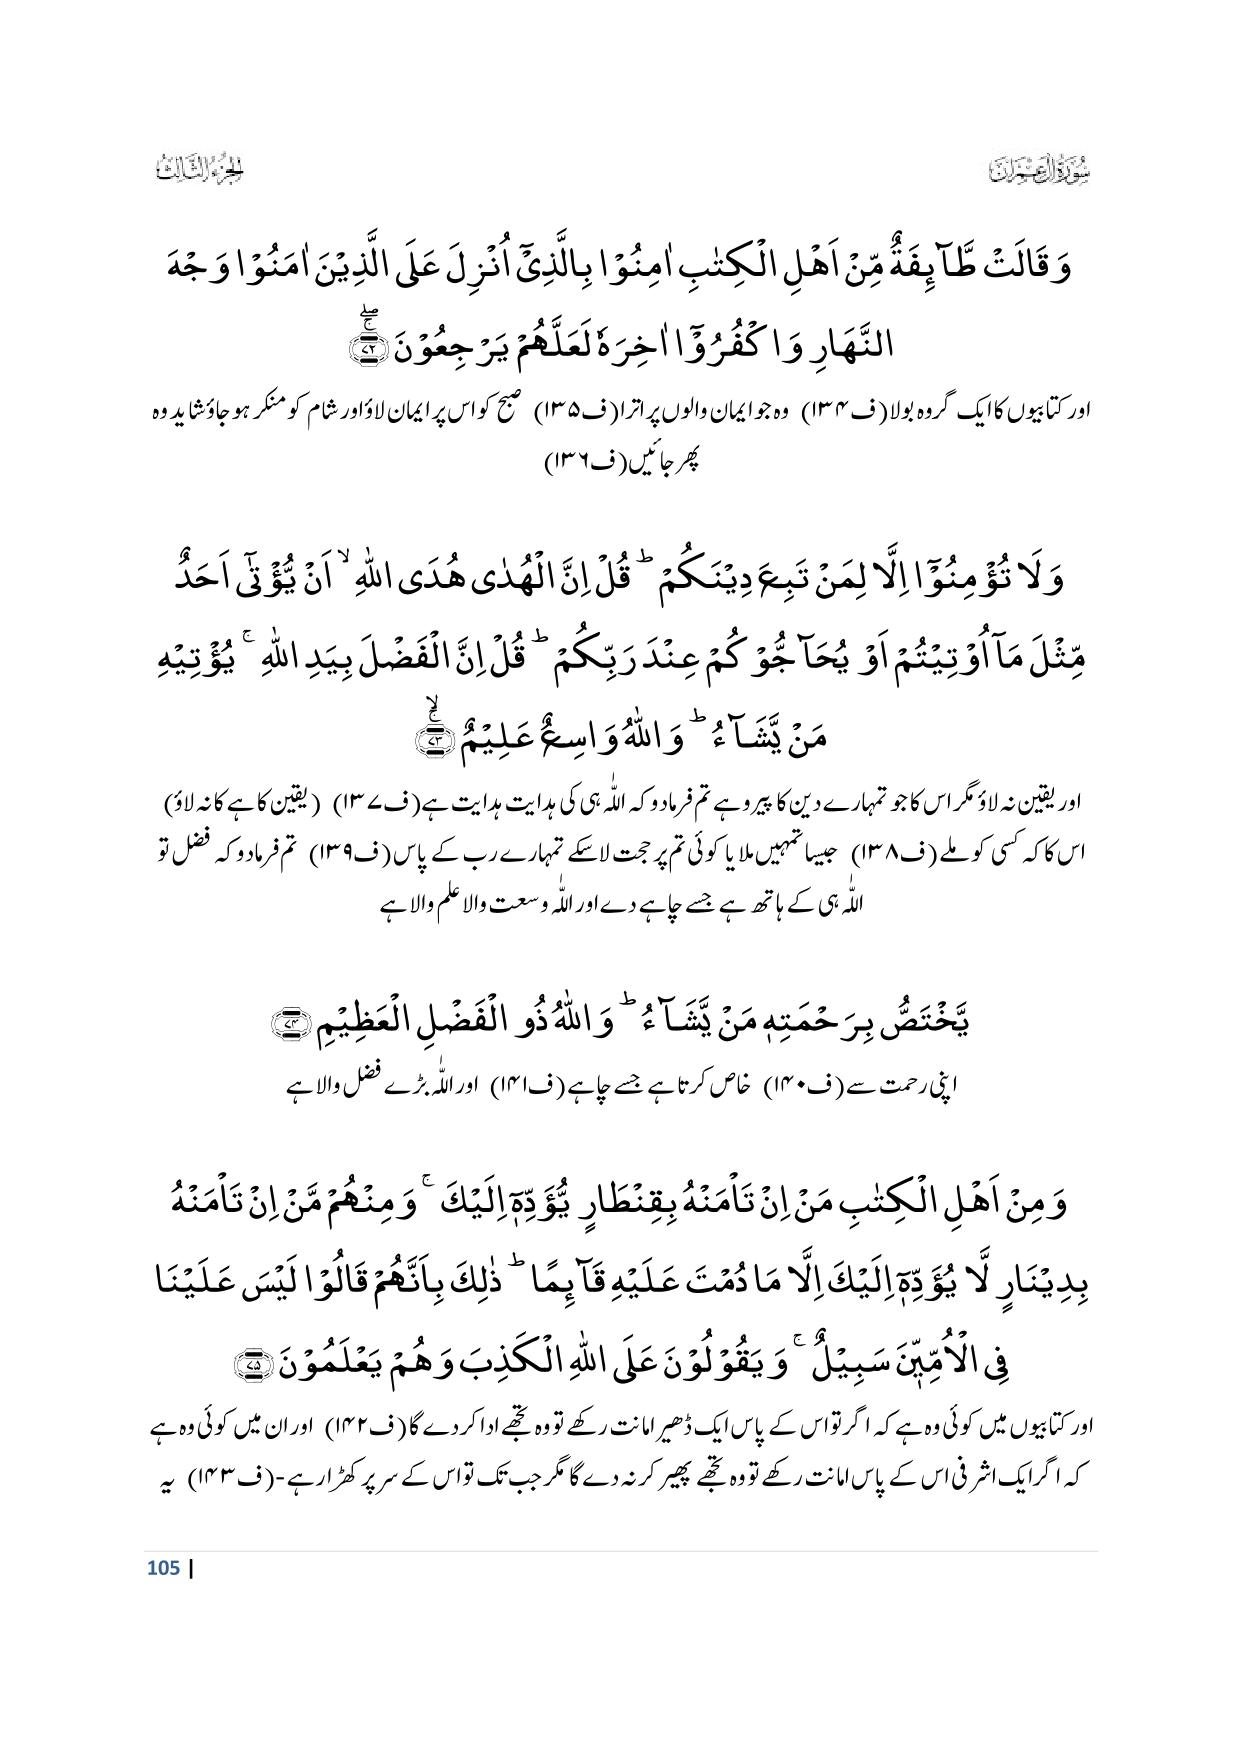 سُوْرَةُ اٰلِ عِمْرَان
الجُزءُ الثَّالِثُ
وَ قَالَتْ طَّآىِٕفَةٌ مِّنْ اَهْلِ الْكِتٰبِ اٰمِنُوْا بِالَّذِیْۤ اُنْزِلَ عَلَى الَّذِیْنَ اٰمَنُوْا وَجْهَ
النَّهَارِ وَ اكْفُرُوْۤا اٰخِرَهٗ لَعَلَّهُمْ یَرْجِعُوْنَۚۖ ﴿۷۲﴾
اور کتابیوں کا ایک گروہ بولا (ف۱۳۴) وہ جو ایمان والوں پر اترا (ف۱۳۵) صبح کو اس پر ایمان لاؤ اور شام کو منکر ہو جاؤ شاید وہ
پھر جائیں (ف۱۳۶)
وَ لَا تُؤْمِنُوْۤا اِلَّا لِمَنْ تَبِعَ دِیْنَكُمْؕ قُلْ اِنَّ الْهُدٰى هُدَى اللّٰهِۙ اَنْ یُّؤْتٰۤى اَحَدٌ
مِّثْلَ مَاۤ اُوْتِیْتُمْ اَوْ یُحَآجُّوْكُمْ عِنْدَ رَبِّكُمْؕ قُلْ اِنَّ الْفَضْلَ بِیَدِ اللّٰهِۚ یُؤْتِیْهِ
مَنْ یَّشَآءُؕ وَ اللّٰهُ وَاسِعٌ عَلِیْمٌۚۙ ﴿۷۳﴾
اور یقین نہ لاؤ مگر اس کا جو تمہارے دین کا پیرو ہے تم فرما دو کہ اللہ ہی کی ہدایت ہدایت ہے (ف۱۳۷) (یقین کاہے کا نہ لاؤ)
اس کا کہ کسی کو ملے (ف۱۳۸) جیسا تمہیں ملا یا کوئی تم پر حجت لا سکے تمہارے رب کے پاس (ف۱۳۹) تم فرما دو کہ فضل تو
اللہ ہی کے ہاتھ ہے جسے چاہے دے اور اللہ وسعت والا علم والا ہے
یَّخْتَصُّ بِرَحْمَتِهٖ مَنْ یَّشَآءُؕ وَ اللّٰهُ ذُو الْفَضْلِ الْعَظِیْمِ ﴿۷۴﴾
اپنی رحمت سے (ف۱۴۰) خاص کرتا ہے جسے چاہے (ف۱۴۱) اور اللہ بڑے فضل والا ہے
وَ مِنْ اَهْلِ الْكِتٰبِ مَنْ اِنْ تَاْمَنْهُ بِقِنْطَارٍ یُّؤَدِّهٖۤ اِلَیْكَۚ وَ مِنْهُمْ مَّنْ اِنْ تَاْمَنْهُ
بِدِیْنَارٍ لَّا یُؤَدِّهٖۤ اِلَیْكَ اِلَّا مَا دُمْتَ عَلَیْهِ قَآىِٕمًاؕ ذٰلِكَ بِاَنَّهُمْ قَالُوْا لَیْسَ عَلَیْنَا
فِی الْاُمِّیّٖنَ سَبِیْلٌۚ وَ یَقُوْلُوْنَ عَلَى اللّٰهِ الْكَذِبَ وَ هُمْ یَعْلَمُوْنَ ﴿۷۵﴾
اور کتابیوں میں کوئی وہ ہے کہ اگر تو اس کے پاس ایک ڈھیر امانت رکھے تو وہ تجھے ادا کر دے گا (ف۱۴۲) اور ان میں کوئی وہ ہے
کہ اگر ایک اشرفی اس کے پاس امانت رکھے تو وہ تجھے پھیر کر نہ دے گا مگر جب تک تو اس کے سر پر کھڑا رہے- (ف۱۴۳) یہ
105 |